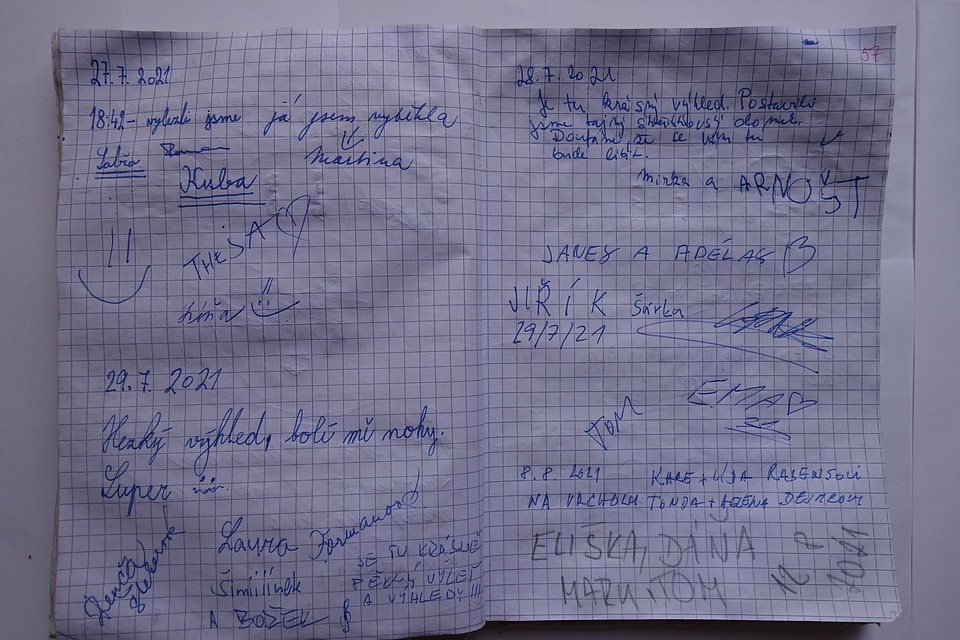 27.7.2021
18:42 - vylezli jsme já jsem vyběhla
Martina
Kuba
THEJSA
Líňa
29.7.2021
Hezký výhled, bolí mě nohy.
Super
Laura Formanová
Šimiiiínek
A BOŽEK
JE TU KRÁSNĚ
PĚKNÝ VÝLET
A VÝHLEDY!!!
57
28.7.2021
Je tu krásný výhled. Postavili
jsme tajný domek.
Doufáme, že se vám tu
bude líbit.
Mirka a ARNOŠT
A ADÉLA
JIŘÍK Šárka
29/7/21
EMA
TOM
8.8.2021
NA VRCHOLU TONDA +
ELIŠKA, DÁŇA
MARU, TOM
12.7
2021